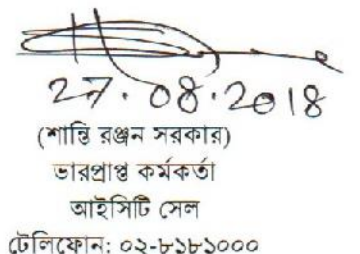 27.08.2018
(শান্তি রঞ্জন সরকার)
ভারপ্রাপ্ত কর্মকর্তা
আইসিটি সেল
টেলিফোন: ০২-৮১৮১০০০